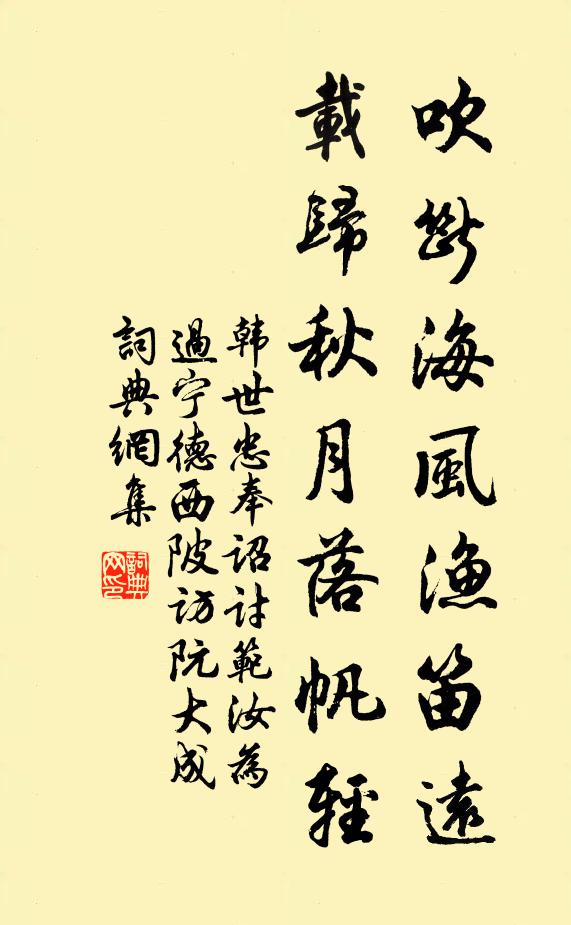 吹斷海風漁笛遠
載歸秋月落帆輕
韩世忠奉詔討範汝為
過宁德西陂訪阮大成
詞典網集
詞典网印